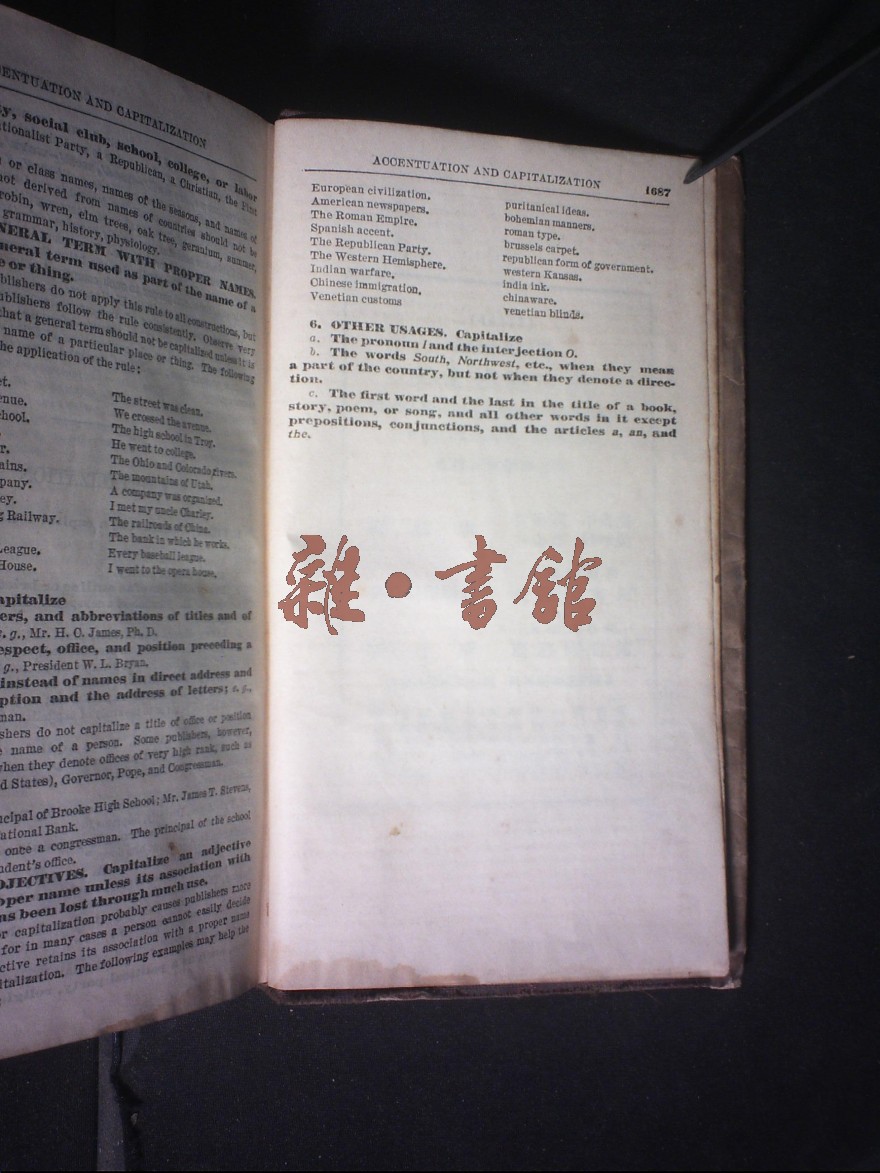 CENTUATION AND CAPITALIZATION
y, social club, school, college, or labor
tionalist Party, a Republican, a Christian, the First
or class names, names of the seasons, and names of
not derived from names of countries should not be
robin, wren, elm trees, oak tree, geranium, summer,
grammar, history, physiology.
NERAL TERM WITH PROPER NAMES.
neral term used as part of the name of a
e or thing.
blishers do not apply this rule to all constructions, but
ublishers follow the rule consistently. Observe very
that a general term should not be capitalized unless it is
name of a particular place or thing. The following
he application of the rule:
et.
The street was clean.
enue.
We crossed the avenue.
chool.
The high school in Troy.
He went to college.
r.
The Ohio and Colorado rivers.
ains.
The mountains of Utah.
pany.
A company was organized.
ey.
I met my uncle Charley.
g Railway.
The railroads of China.
The bank in which he works.
League.
Every baseball league.
House.
I went to the opera house.
apitalize
ers, and abbreviations of titles and of
g., Mr. H. C. James, Ph. D.
espect, office, and position preceding a
g., President W. L. Bryan.
instead of names in direct address and
ption and the address of letters; e. g.,
man.
shers do not capitalize a title of office or position
e name of a person. Some publishers, however,
when they denote offices of very high rank, such as
d States), Governor, Pope, and Congressman.
ncipal of Brooke High School; Mr. James T. Stevens,
ational Bank.
once a congressman. The principal of the school
ndent's office.
DJECTIVES. Capitalize an adjective
oper name unless its association with
as been lost through much use.
or capitalization probably causes publishers more
for in many cases a person cannot easily decide
ctive retains its association with a proper name
italization. The following examples may help the
ACCENTUATION AND CAPITALIZATION 1687
European civilization.
American newspapers.
The Roman Empire.
Spanish accent.
The Republican Party.
The Western Hemisphere.
Indian warfare.
Chinese immigration.
Venetian customs
puritanical ideas.
bohemian manners.
roman type.
brussels carpet.
republican form of government.
western Kansas.
india ink.
chinaware.
venetian blinds.
6. OTHER USAGES. Capitalize
a. The pronoun I and the interjection O.
b. The words South, Northwest, etc., when they mean
a part of the country, but not when they denote a direc-
tion.
c. The first word and the last in the title of a book,
story, poem, or song, and all other words in it except
prepositions, conjunctions, and the articles a, an, and
the.
雜·書館